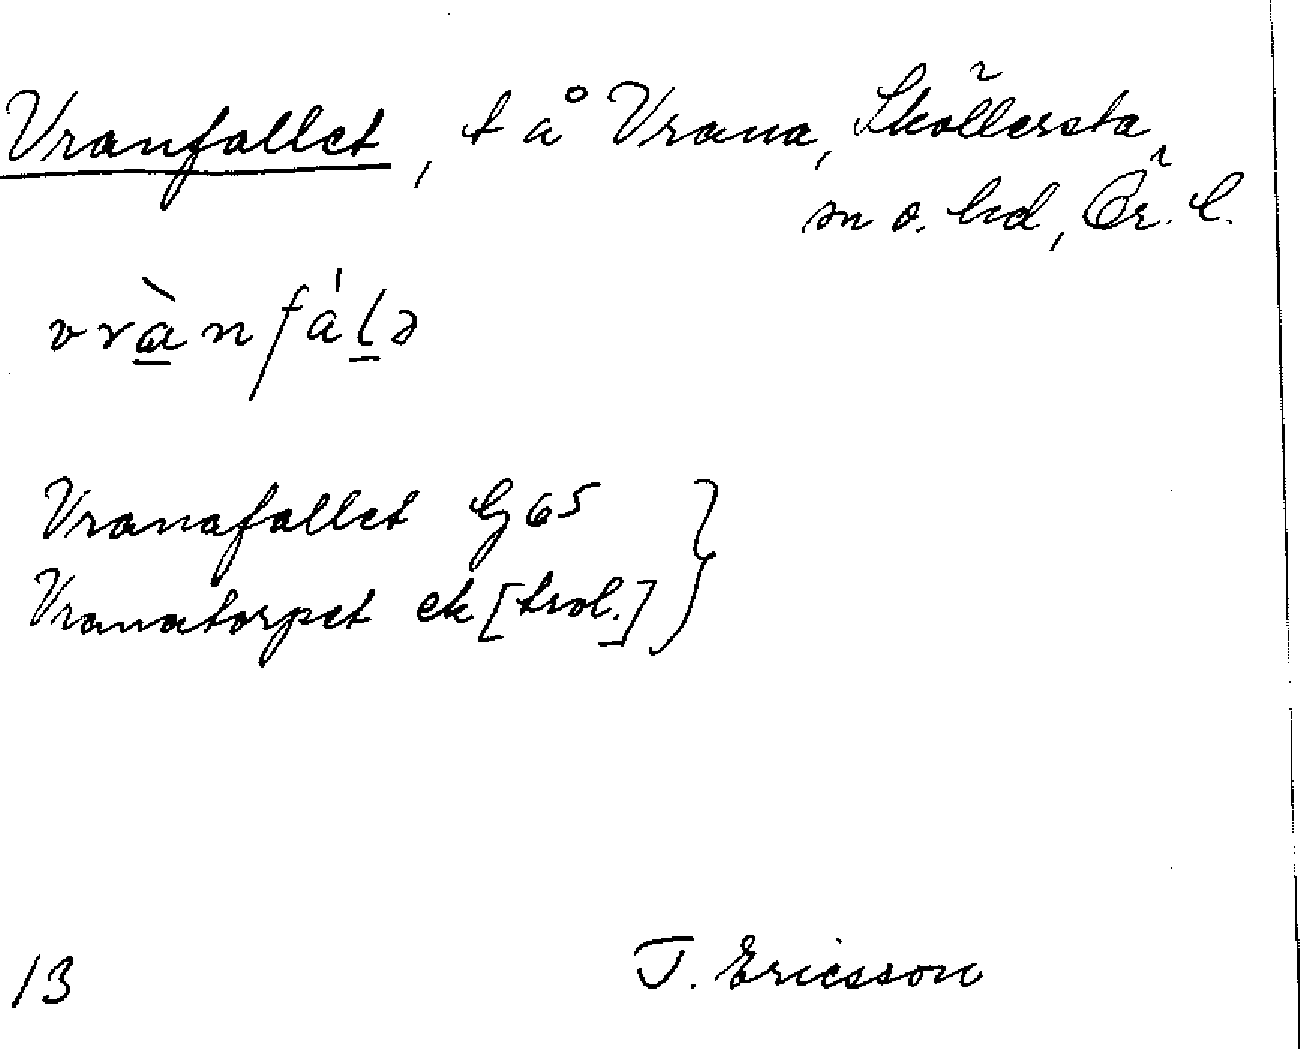 Vranfallet, t å Vrana, Sköllersta
sn o. hd, Ör. l.
vrànfálə
Vranafallet G 65 }
Vranatorpet ek [trol.] }
13 T. Ericsson